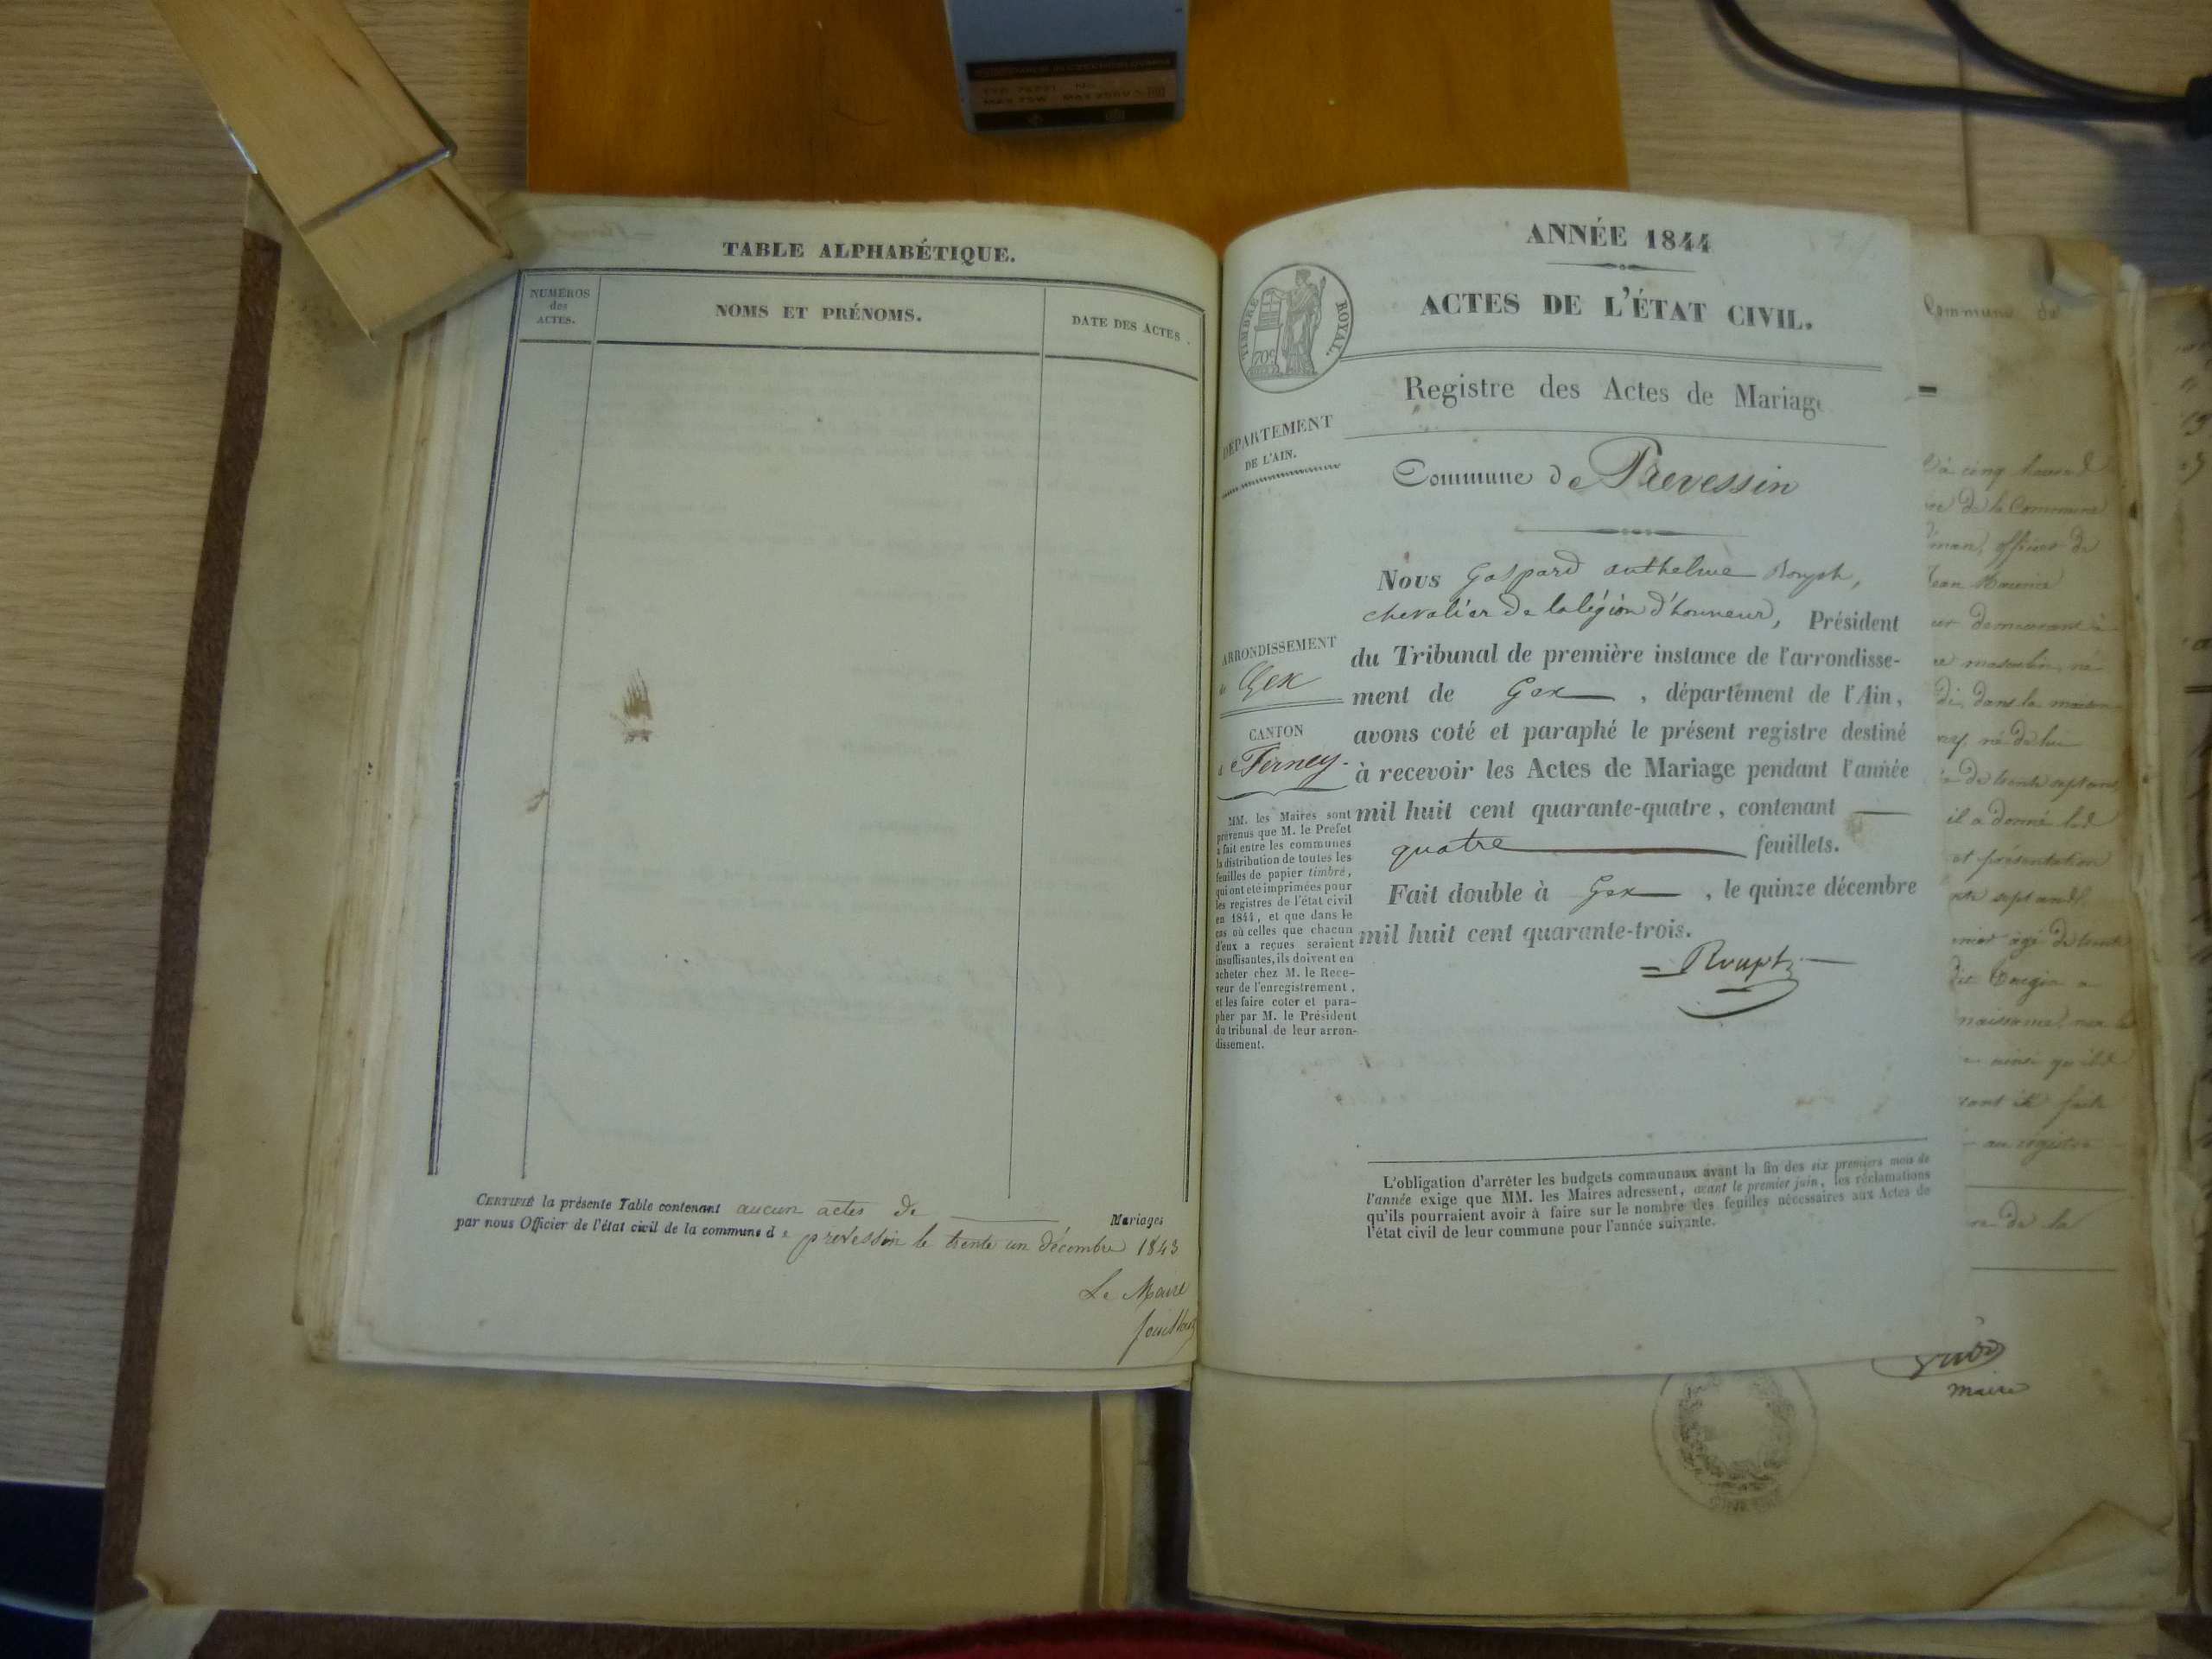 TABLE ALPHABÉTIQUE.
NUMÉROS
des
ACTES.
NOMS ET PRÉNOMS.
DATE DES ACTES.
CERTIFIÉ la présente Table contenant aucun actes de Mariages
par nous Officier de l'état civil de la commune de prevessin le trente un décembre 1843
Le Maire
ANNÉE 1844
ACTES DE L'ÉTAT CIVIL.
TIMBRE ROYAL.
70c
Registre des Actes de Mariage
DÉPARTEMENT
DE L'AIN.
Commune de Prevessin
Nous Gaspard anthelme
chevalier de la légion d'honneur, Président
ARRONDISSEMENT
de Gex
du Tribunal de première instance de l'arrondisse-
ment de Gex, département de l'Ain,
CANTON
de Ferney.
avons coté et paraphé le présent registre destiné
à recevoir les Actes de Mariage pendant l'année
mil huit cent quarante-quatre, contenant
quatre feuillets.
Fait double à Gex, le quinze décembre
mil huit cent quarante-trois.
MM. les Maires sont
prévenus que M. le Préfet
a fait entre les communes
la distribution de toutes les
feuilles de papier timbré,
qui ont été imprimées pour
les registres de l'état civil
en 1844, et que dans le
cas où celles que chacun
d'eux a reçues seraient
insuffisantes, ils doivent en
acheter chez M. le Rece-
veur de l'enregistrement,
et les faire coter et para-
pher par M. le Président
du tribunal de leur arron-
dissement.
L'obligation d'arrêter les budgets communaux avant la fin des six premiers mois de
l'année exige que MM. les Maires adressent, avant le premier juin, les réclamations
qu'ils pourraient avoir à faire sur le nombre des feuilles nécessaires aux Actes de
l'état civil de leur commune pour l'année suivante.
Commune de
à cinq heures
de la Commune
officier de
Jean Maurice
demeurant à
masculin, né
dans la maison
né de lui
de trente sept ans
il a donné
et présentation
sept ans
âgé de trente
naissance
ainsi qu'il
au registre
de la
maire